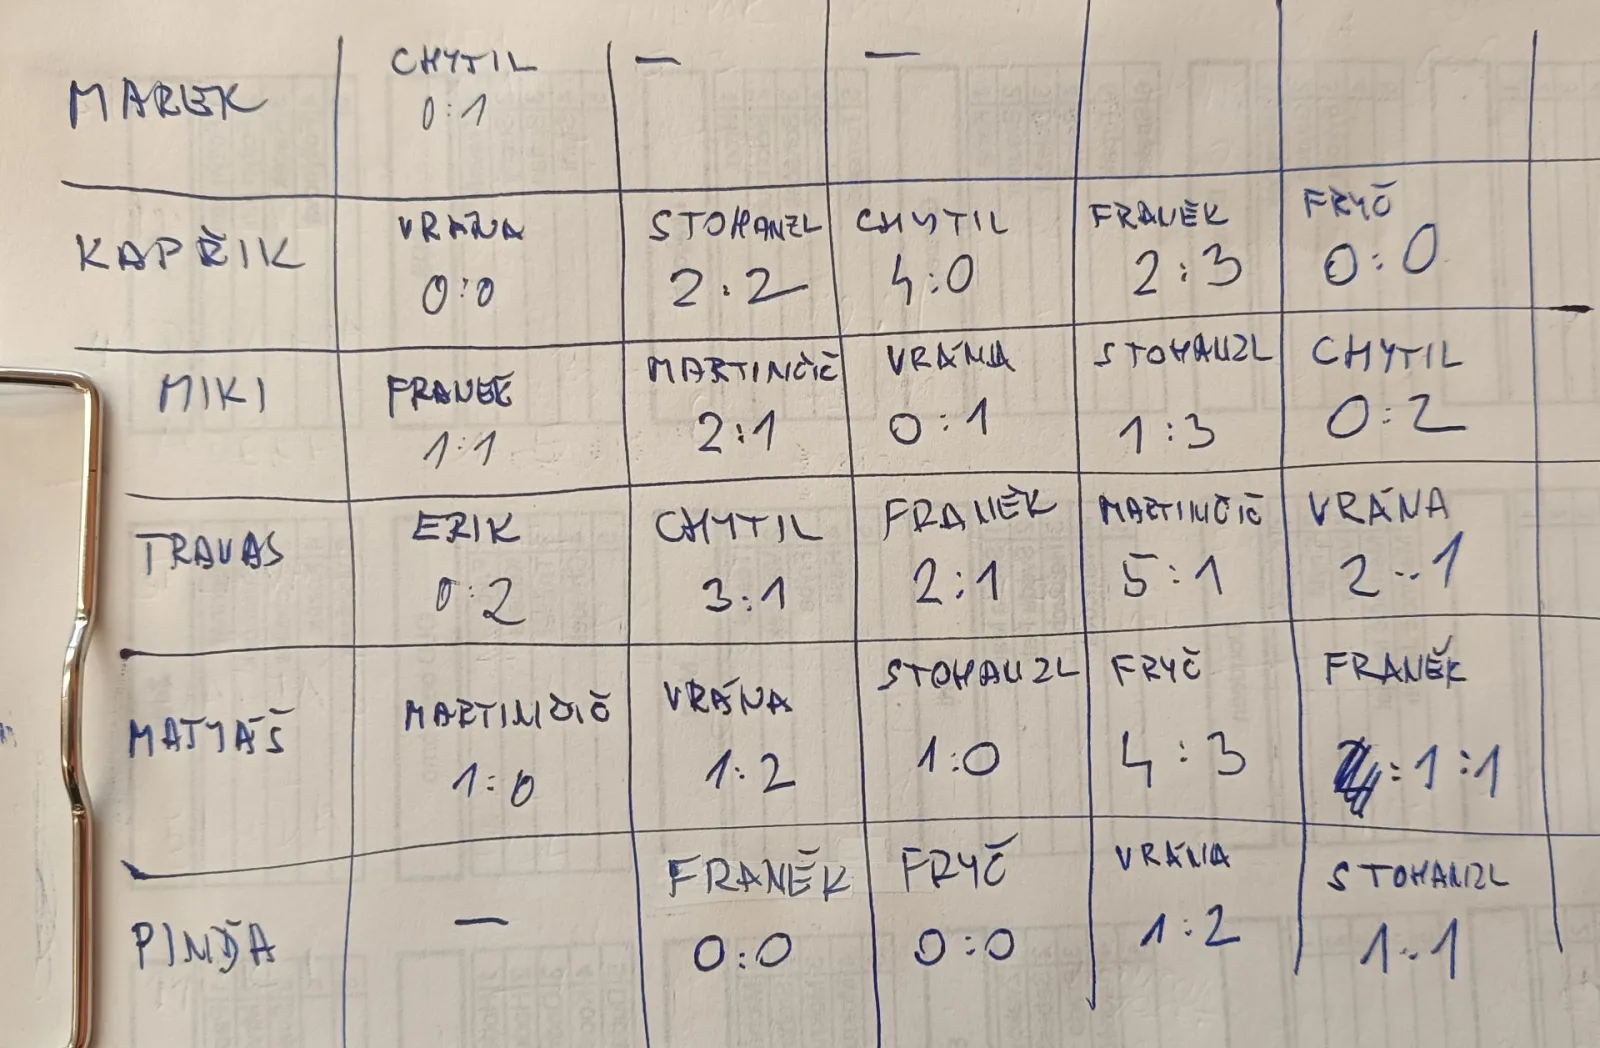 MAREK CHYTIL — —
0:1
KAPŘIK VRÁNA STOHANZL CHYTIL FRANĚK FRYČ
0:0 2:2 4:0 2:3 0:0
MIKI FRANĚK MARTINČIČ VRÁNA STOHANZL CHYTIL
1:1 2:1 0:1 1:3 0:2
TRAVAS ERIK CHYTIL FRANĚK MARTINČIČ VRÁNA
0:2 3:1 2:1 5:1 2:1
MATYÁŠ MARTINČIČ VRÁNA STOHANZL FRYČ FRANĚK
1:0 1:2 1:0 4:3 :1:1
PINĎA — FRANĚK FRYČ VRÁNA STOHANZL
0:0 0:0 1:2 1:1